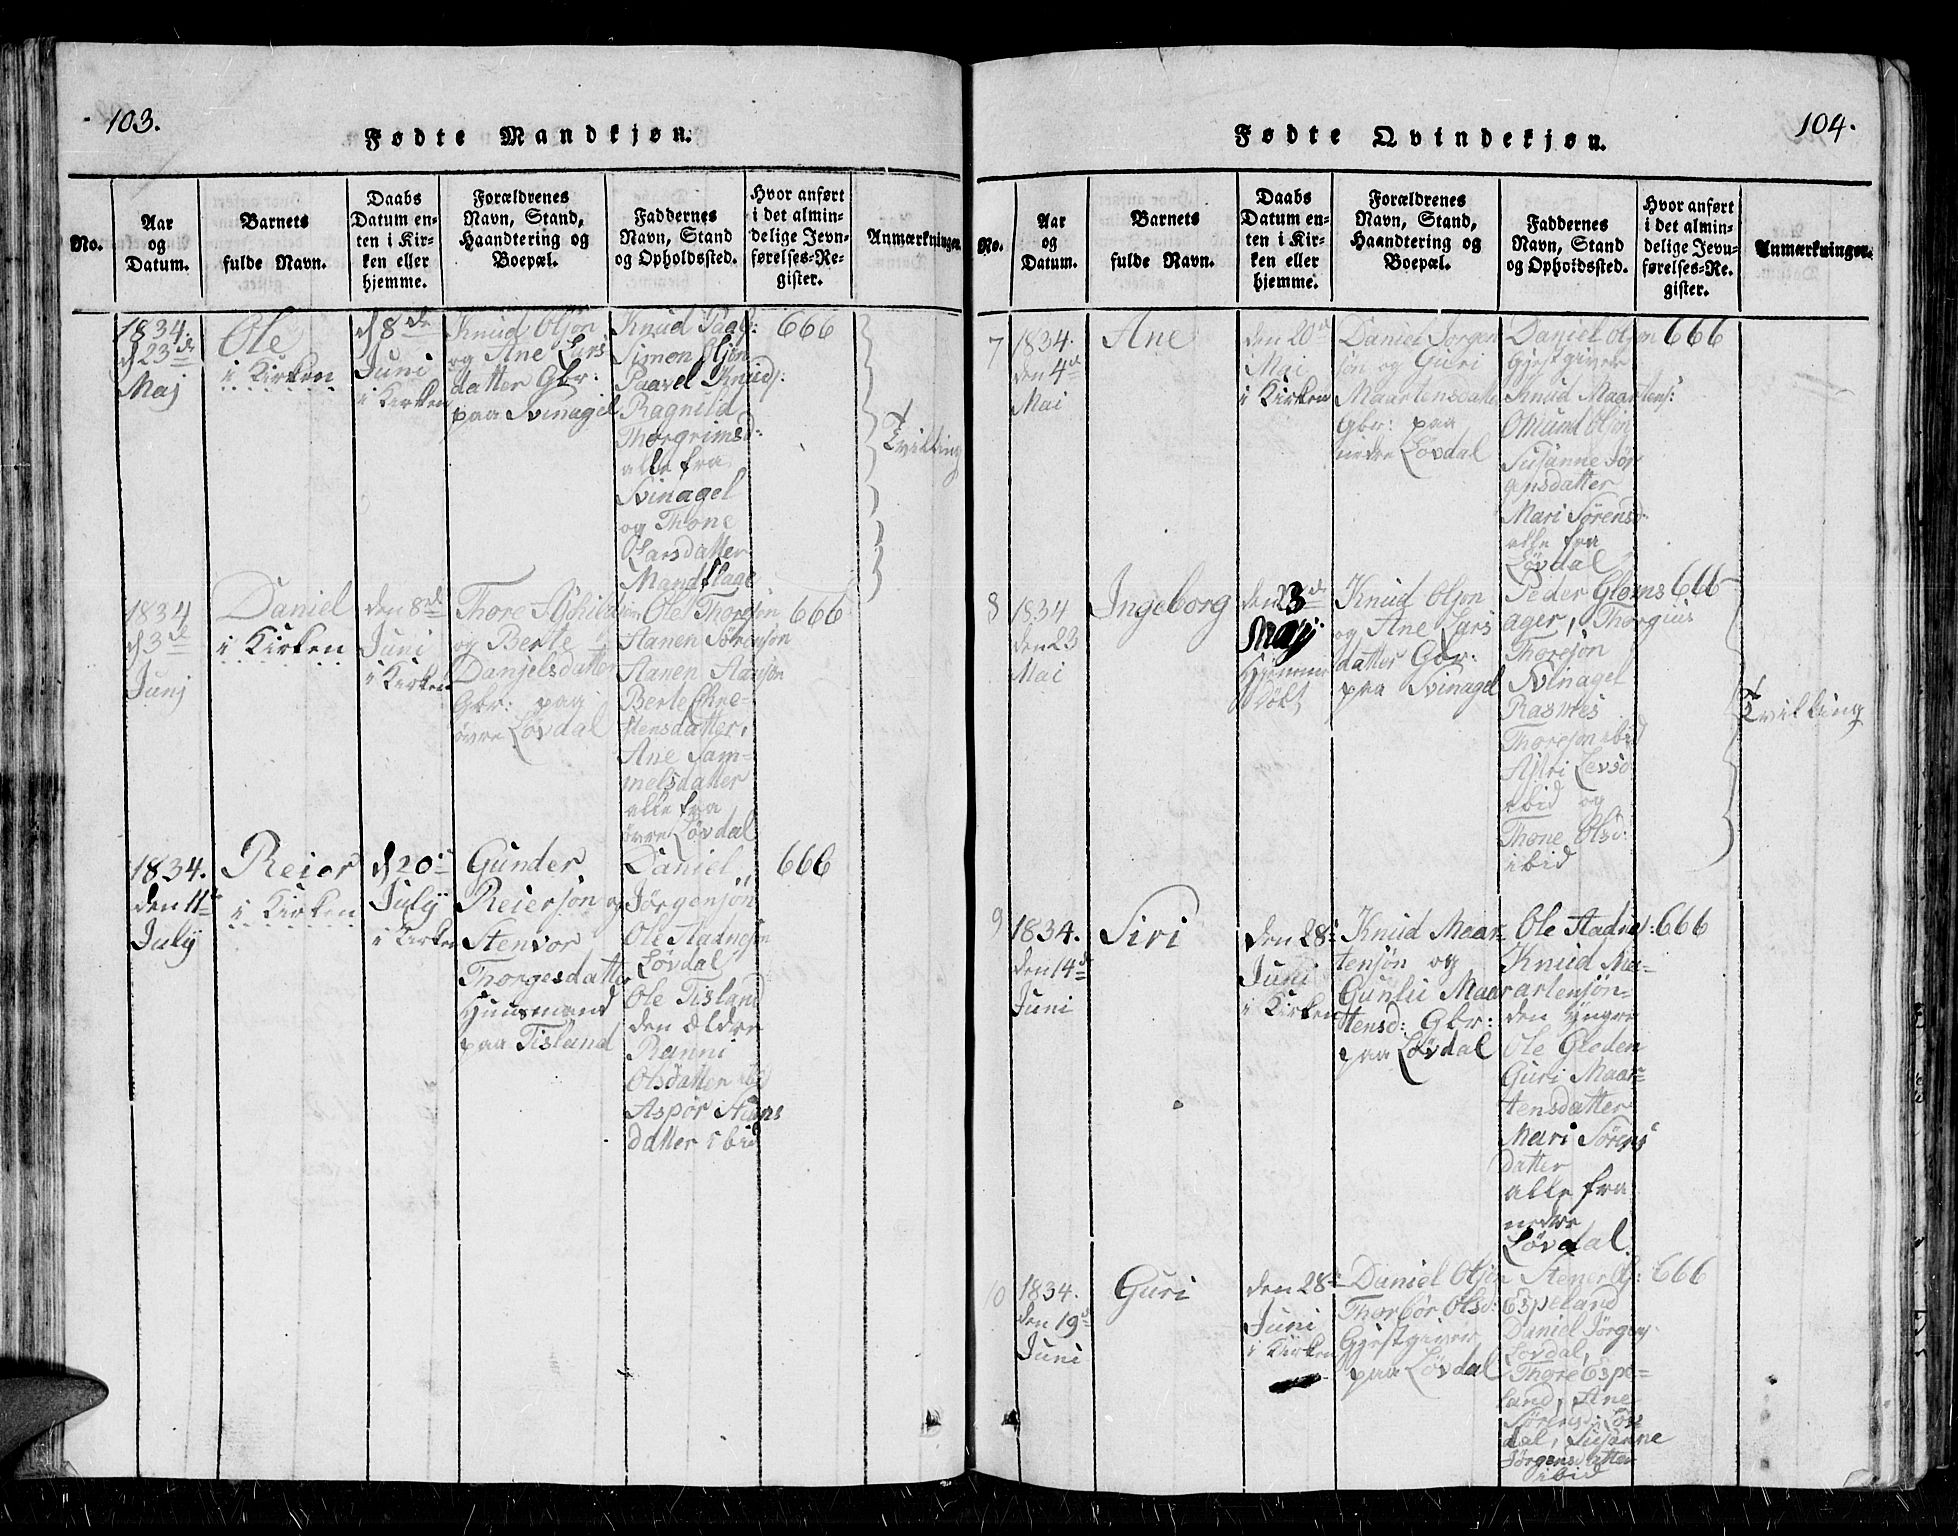 103.
Fødte Mandkjøn.
No.
Aar
og
Datum.
Barnets
fulde Navn.
Daabs
Datum en-
ten i Kir-
ken eller
hjemme.
Forældrenes
Navn, Stand,
Haandtering og
Boepæl.
Faddernes
Navn, Stand
og Opholdssted.
Hvor anført
i det almin-
delige Jevn-
førelses-Re-
gister.
Anmærkninger.
1834.
d 23de
Maj
Ole
i Kirken
d 8de
Juni
i Kirken
Knud Olsøn
og Ane Lars
datter Gbr:
paa Svinagel
Knud Paals:
Simon Olsøn
Paavel Knuds:
Ragnild
Thorgrimsd:
alle fra
Svinagel
og Thone
Olarsdatter
Mandflage
666
Tvilling
1834
d 3de
Junj
Daniel
i Kirken
den 8de
Juni
i Kirken
Thore Aschild
og Berte
Danjelsdatter
Gbr: paa
øvre Løvdal
Ole Thoresøn
Aanen Sørensøn
Aanen Aansøn
Berte Chre-
stensdatter,
Ane Sam-
melsdatter
alle fra
øvre Løvdal
666
1834.
den 11te
July
Reier
i Kirken
d 20de
July
i Kirken
Gunder
Reiersøn og
Stenvor
Thorgesdatter
Huusmand
paa Tisland
Daniel
Jørgensøn
Ole Stadnesøn
Løvdal
Ole Tisland
den Ældre
Ranni
Olsdatter ibid
Aspør Hans
datter ibid
666
104.
Fødte Qvindekjøn.
No.
Aar
og
Datum.
Barnets
fulde Navn.
Daabs
Datum en-
ten i Kir-
ken eller
hjemme.
Forældrenes
Navn, Stand,
Haandtering og
Boepæl.
Faddernes
Navn, Stand
og Opholdssted.
Hvor anført
i det almin-
delige Jevn-
førelses-Re-
gister.
Anmærkninger.
7
1834.
den 4de
Mai
Ane
den 20de
Mai
i Kirken
Daniel Jørgen
søn og Guri
Maartensdatter
Gbr: paa
nedre Løvdal
Daniel Olsøn
Gjestgiver
Knud Maartens:
Omund Olsøn
Susanne Jør
gensdatter
Mari Sørensd:
alle fra
Løvdal
666
8
1834
den 23
Mai
Ingeborg
den 23de
Maji
Hjemme
Døbt
Knud Olsøn
og Ane Lars
datter Gbr:
paa Svinagel
Peder Gloms
ager, Thorgius
Thoresøn
Svinagel
Rasmes
Thoresøn ibid
Astri Levsd
ibid og
Thone Olsd:
ibid
666
Tvilling
9
1834.
den 14de
Juni
Siri
den 28de
Juni
i Kirken
Knud Maar-
tensøn og
Gunlu Maar
tensd: Gbr:
paa Løvdal
Ole Stadnes:
Knud Ma-
artensøn
den Yngre
Ole Gleden
Guri Maar-
tensdatter
Mari Sørens
datter
alle fra
nedre
Løvdal.
666
10
1834.
den 19de
Juni
Guri
den 28de
Juni
i Kirken
Daniel Olsøn
Thorbør Olsd:
Gjestgiver
paa Løvdal
Stener Ols:
Espeland
Daniel Jørgens
Løvdal,
Thore Espe-
land, Ane
Sørensd: Løv
dal, Susanne
Jørgensdatter
ibid
666